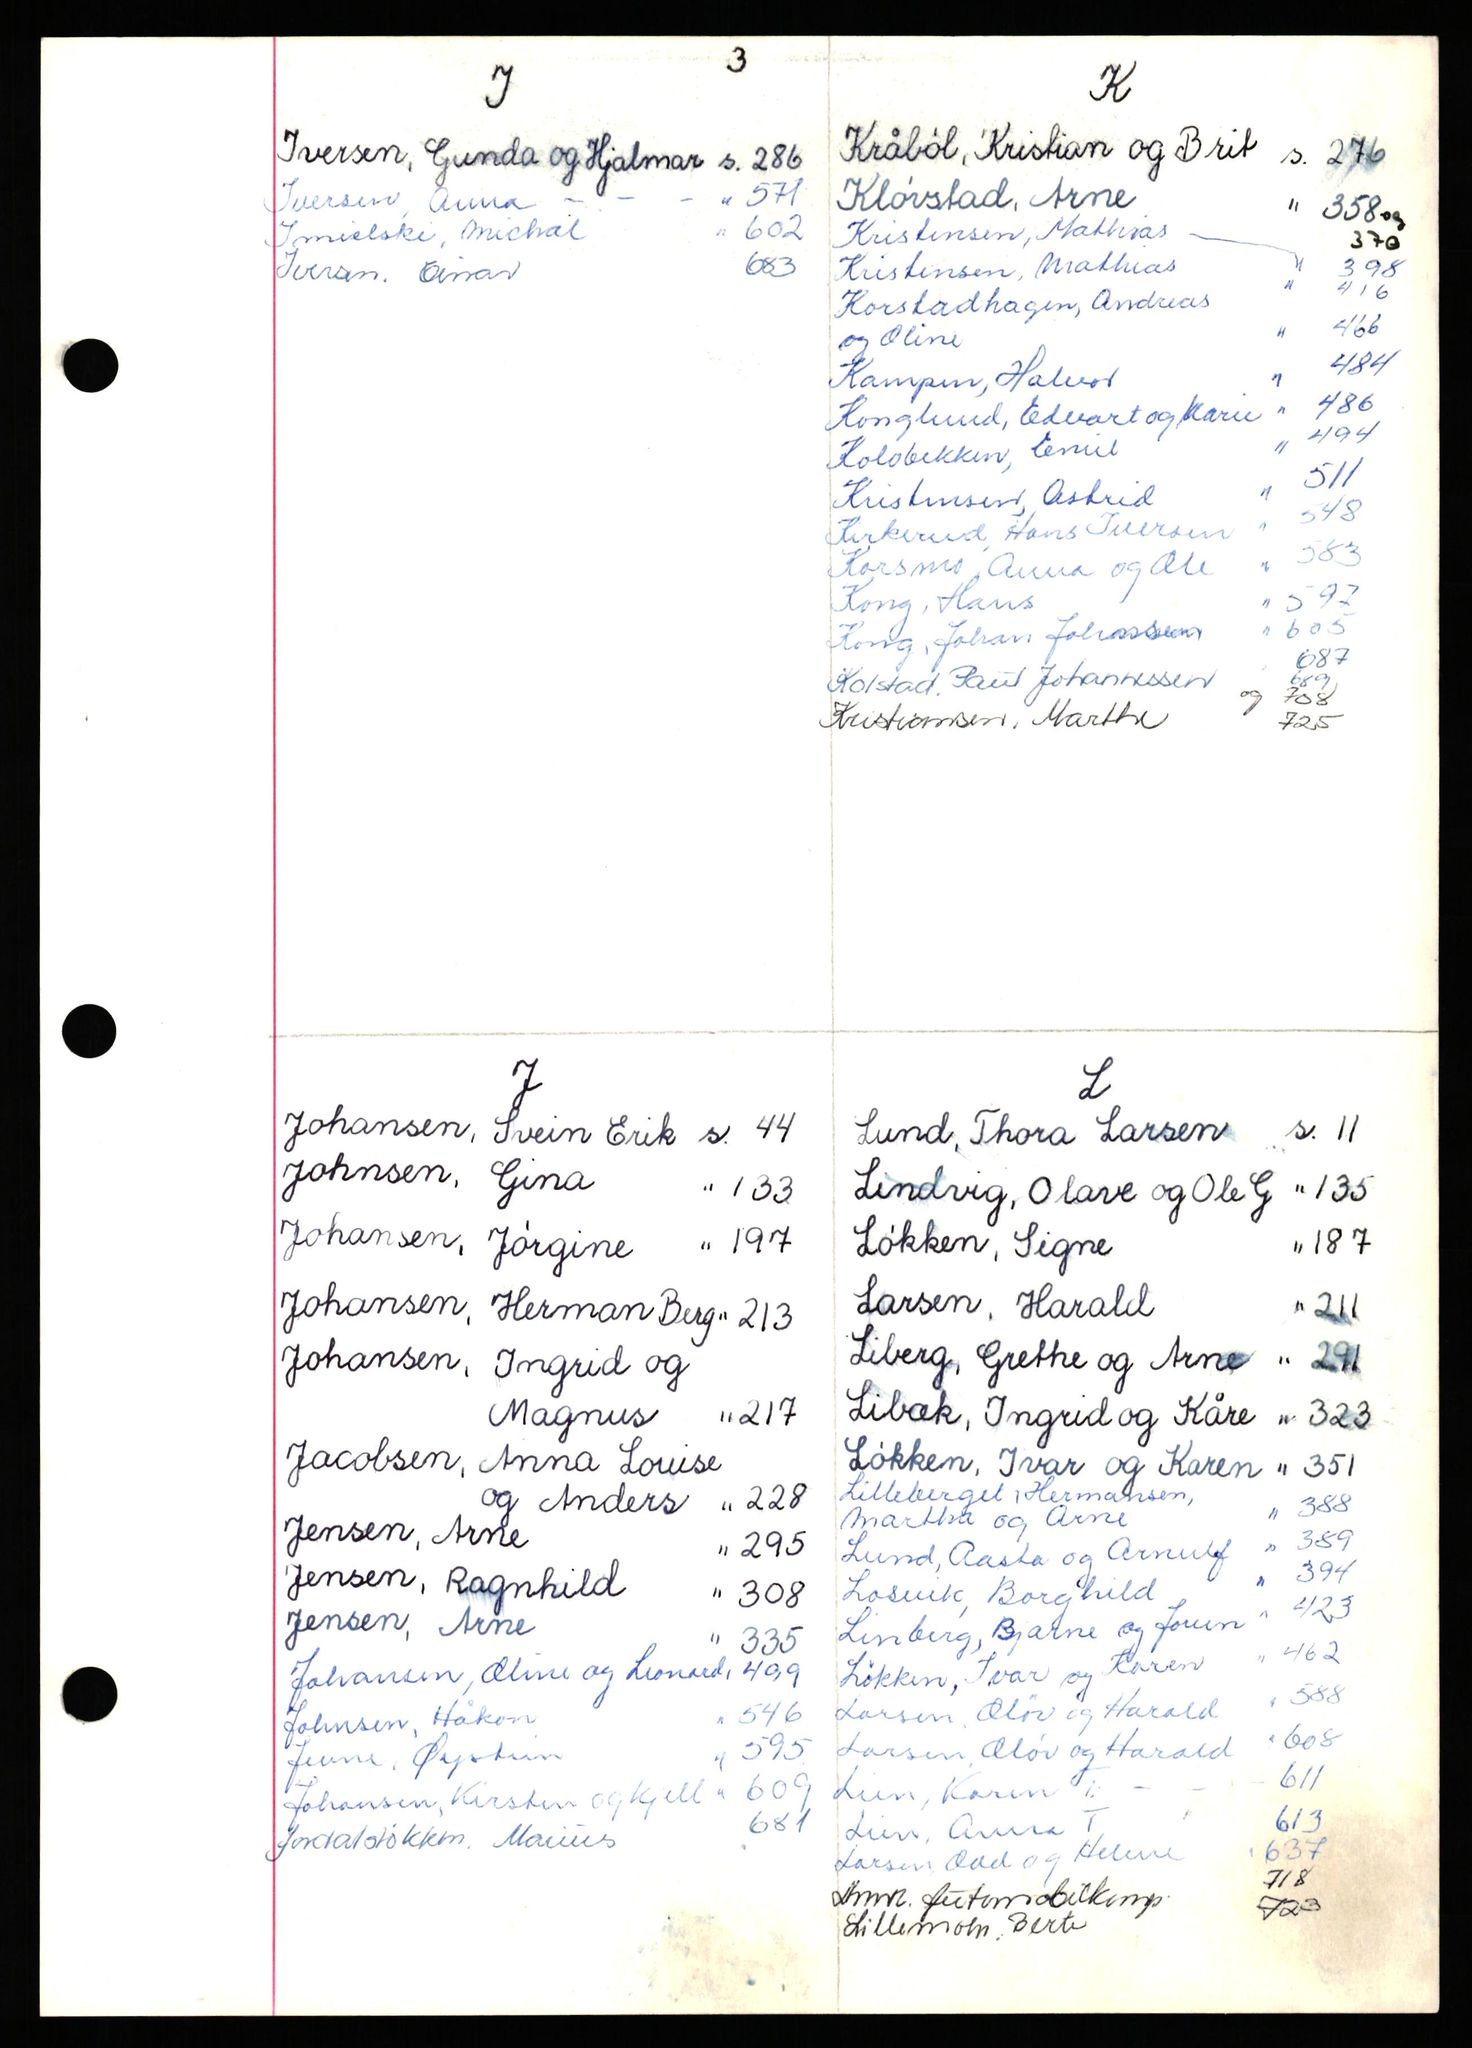 3
I
Iversen, Gunda og Hjalmar s. 286
Iversen, Anna - - - " 571
Imielski, Michal " 602
Iversen. Einar 683
K
Kråból, Kristian og Brit s. 276
Klórstad, Arne " 358 og
370
Kristensen, Mathias
Kristensen, Mathias " 398
Korstadhagen, Andreas " 416
og Oline " 466
Kampen, Halvor " 484
Konglund, Edvart og Marie " 486
Kolobekken, Emil " 494
Kristensen, Astrid " 511
Kirkerud, Hans Iversen " 548
Korsmo, Anna og Ole " 583
Kong, Hans " 597
Kong, Johan Johansen " 605
687
Kolstad. Paul Johannessen 689
og 708
Kristiansen. Marthe 725
J
Johansen, Svein Erik s. 44
Johnsen, Gina " 133
Johansen, Jórgine " 197
Johansen, Herman Berg " 213
Johansen, Ingrid og
Magnus " 217
Jacobsen, Anna Louise
og Anders " 228
Jensen, Arne " 295
Jensen, Ragnhild " 308
Jensen, Arne " 335
Johansen, Oline og Leonard " 499
Johnsen, Håkon " 546
Jevne, Øystein " 595
Johansen, Kirsten og Kjell " 609
Jordalsløkken. Marius 681
L
Lund, Thora Larsen s. 11
Lindvig, Olave og Ole G " 135
Lókken, Signe " 187
Larsen, Harald " 211
Liberg, Grethe og Arne " 291
Libæk, Ingrid og Kåre " 323
Lókken, Ivar og Karen " 351
Lilleberget, Hermansen,
Martha og Arne " 388
Lund, Aasta og Arnulf " 389
Losvik, Borghild " 394
Linberg, Bjarne og Jorun " 423
Løkken, Ivar og Karen " 462
Larsen, Oløv og Harald " 588
Larsen, Oløv og Harald " 608
Lien, Karen T. - - - 611
Lien, Anna T " 613
Larsen, Odd og Helene " 637
Automobilkomp. 718
Lillemoen. Berte 723